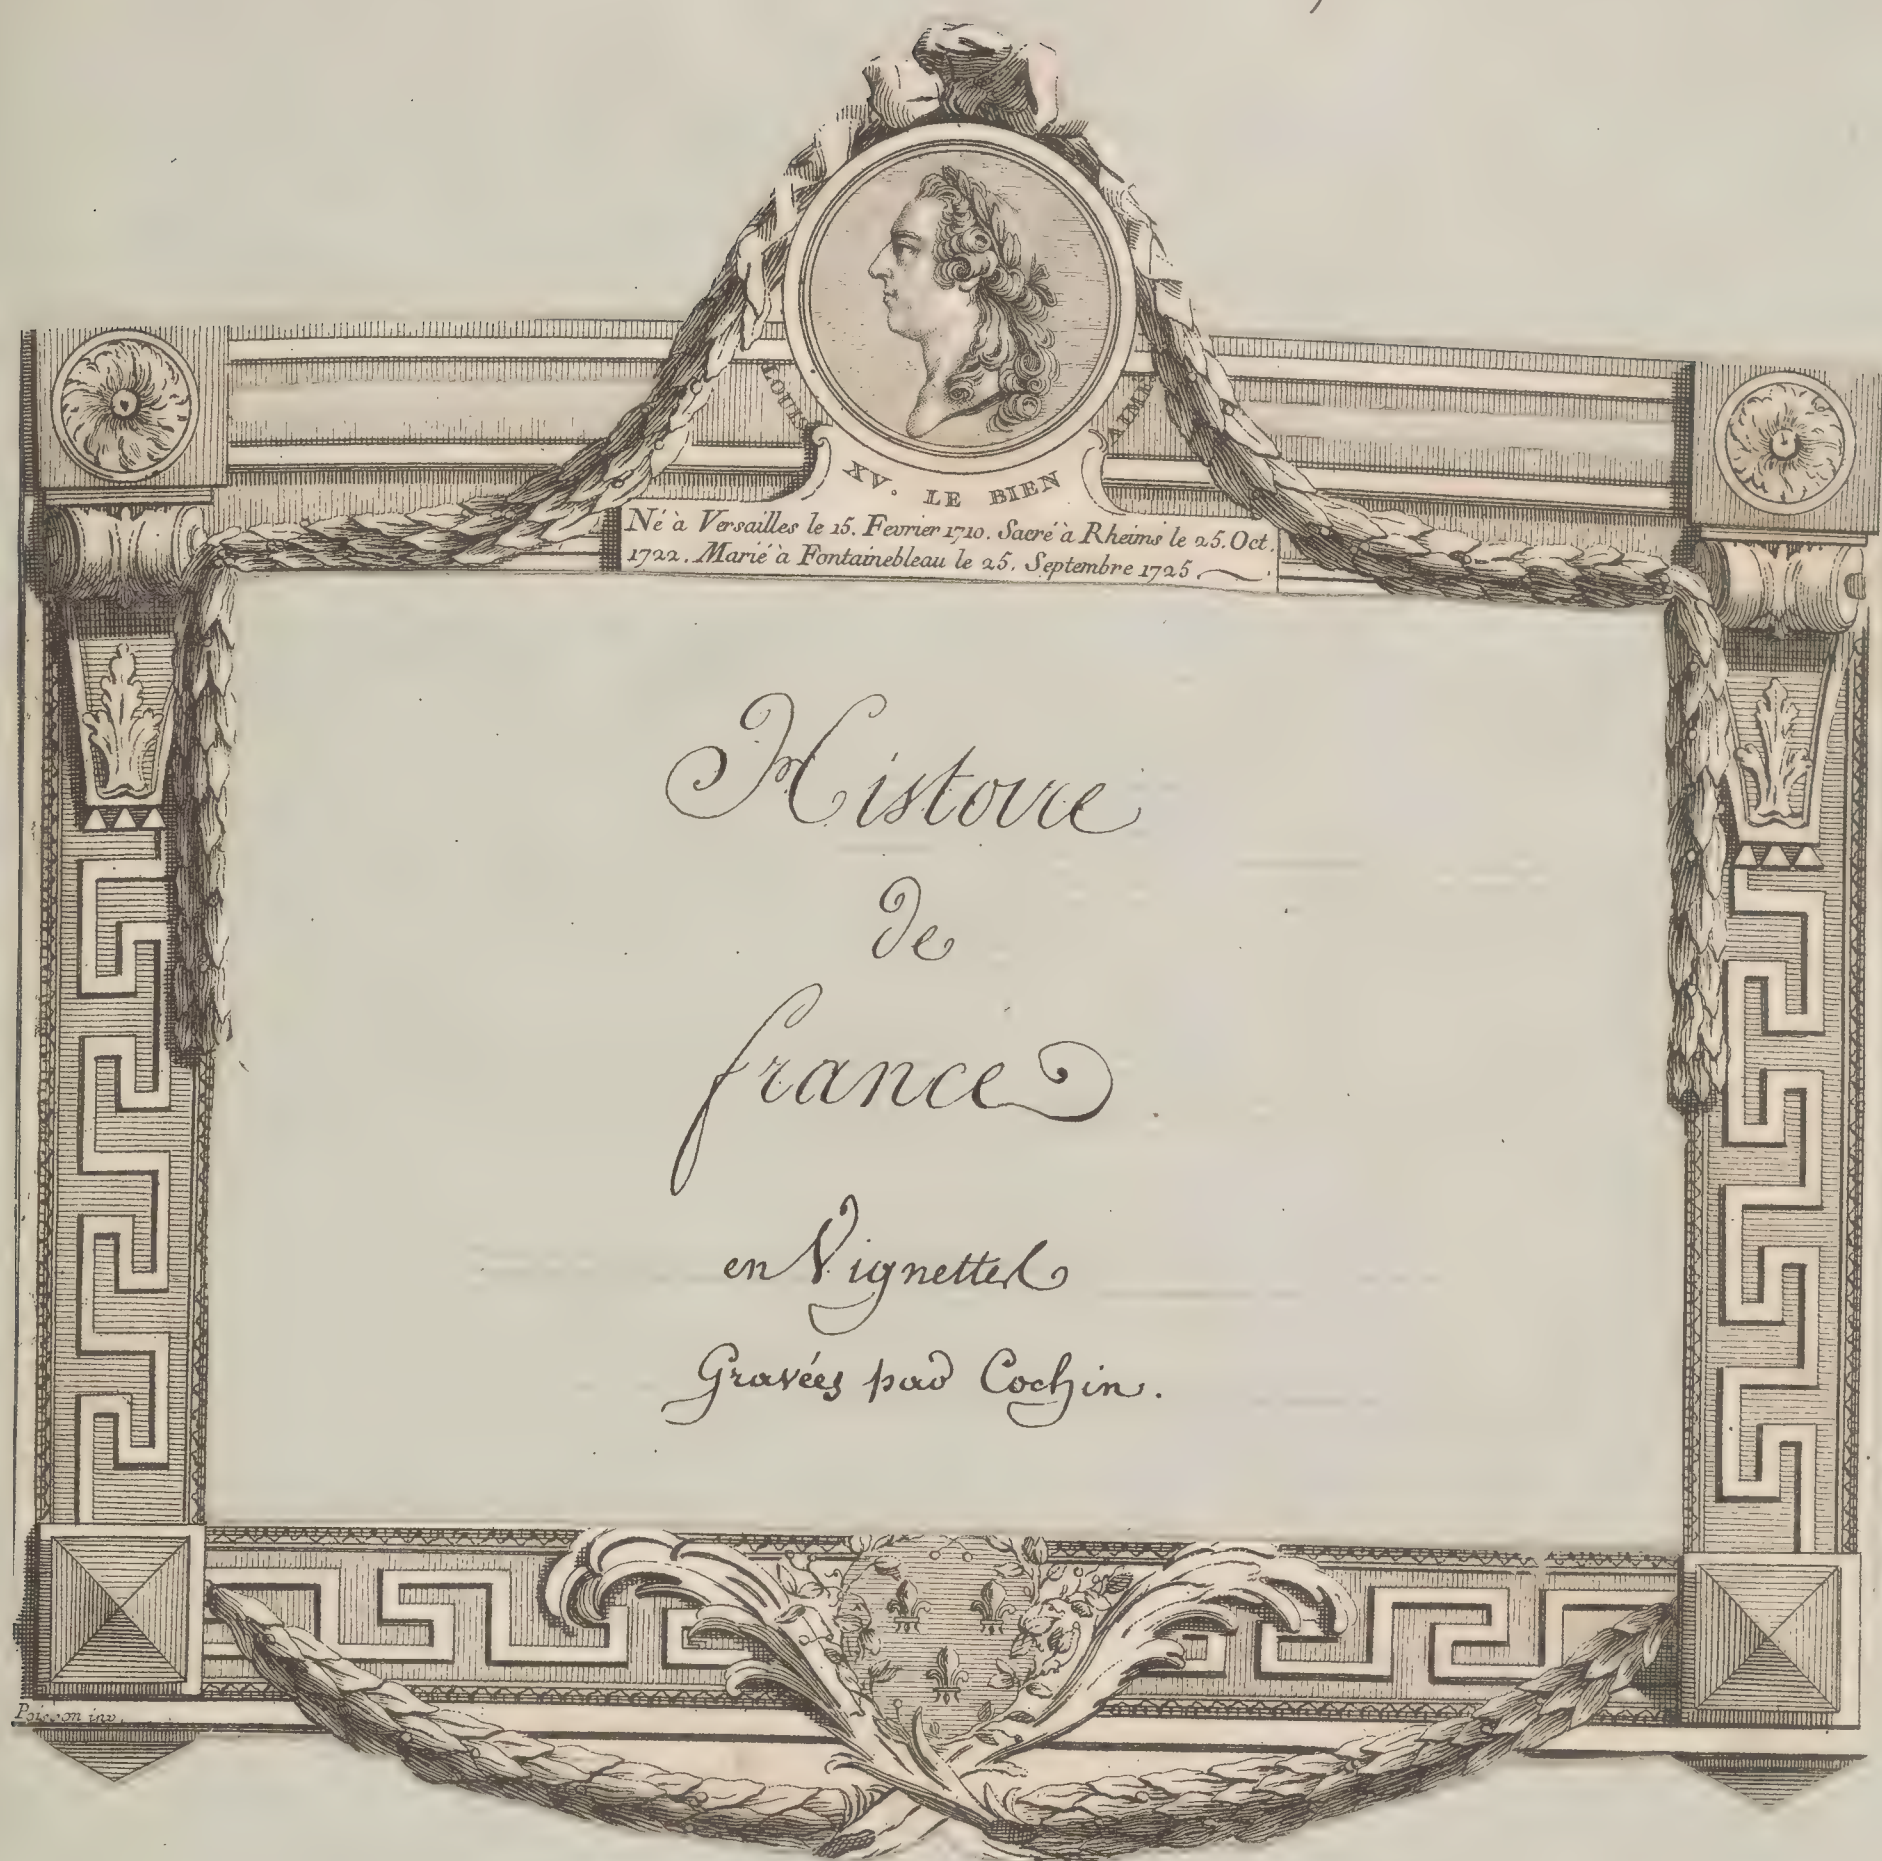 LOUIS XV. LE BIEN AIMÉ
Né à Versailles le 15. Fevrier 1710. Sacré à Rheims le 25. Oct.
1722. Marié à Fontainebleau le 25. Septembre 1725
Histoire
de
france
en Vignettes
Gravées par Cochin.
Poisson inv.